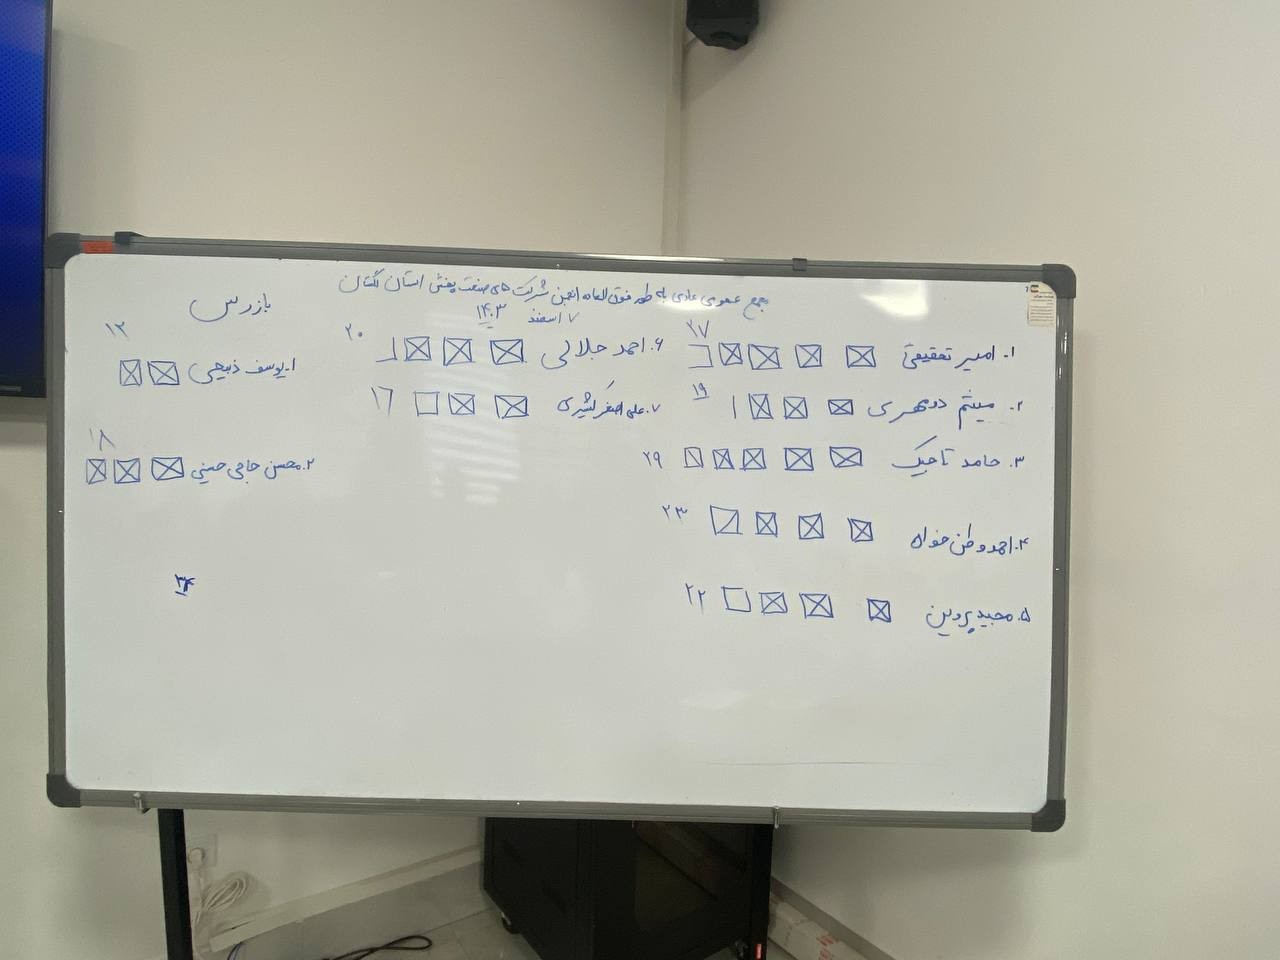 مجمع عمومی عادی به طور فوق العاده انجمن شرکت های صنعت پخش استان گلستان
۷ اسفند ۱۴۰۳
۱. امیر تحقیقی ۲۷
۲. میثم دوهری ۱۹
۳. حامد تاجیک ۲۹
۴. احمد وطن خواه ۲۳
۵. مجید پروین ۲۲
۶. احمد جلالی ۲۰
۷. علی اصغر کشیری ۱۶
بازرس
۱. یوسف ذبیحی ۱۲
۲. محسن حاجی حسینی ۱۸
۳۴